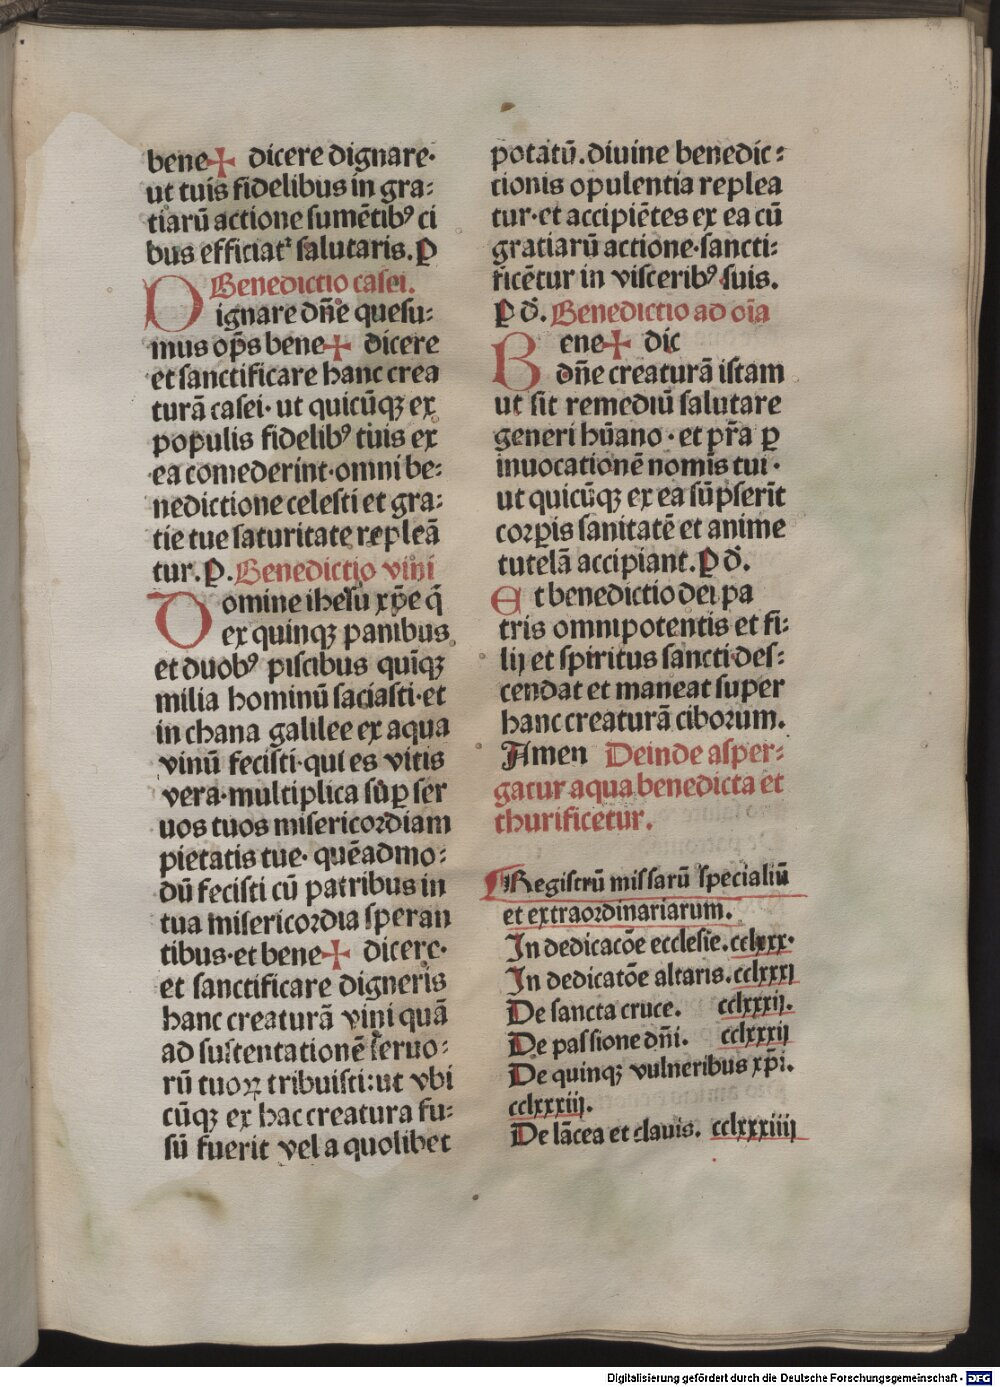 bene✠ dicere dignare·
ut tuis fidelibus in gra:
tiarū actione sumētibꝰ ci
bus efficiat᷑ salutaris. P
Benedictio casei.
Dignare dn̄e quesu:
mus op̄s bene✠ dicere
et sanctificare hanc crea
turā casei· ut quicūqꝫ ex
populis fidelibꝰ tuis ex
ea comederint·omni be:
nedictione celesti et gra:
tie tue saturitate repleā
tur. P. Benedictio vini
Domine ihesu xp̄e q̄
ex quinqꝫ panibus
et duobꝰ piscibus quīqꝫ
milia hominū saciasti·et
in chana galilee ex aqua
vinū fecisti·qui es vitis
vera·multiplica sūꝑ ser
uos tuos misericordiam
pietatis tue· quēadmo:
dū fecisti cū patribus in
tua misericordia speran
tibus·et bene✠ dicere·
et sanctificare digneris
hanc creaturā vini quā
ad sustentationē seruo:
rū tuoꝝ tribuisti:ut vbi
cūqꝫ ex hac creatura fu:
sū fuerit vel a quolibet
potatū.diuine benedic:
tionis opulentia replea
tur·et accipiētes ex ea cū
gratiarū actione·sancti:
ficētur in visceribꝰ suis.
P d̄. Benedictio ad oīa
Bene✠ dic
dn̄e creaturā istam
ut sit remediū salutare
generi hūano·et pr̄a ꝑ
inuocationē nomīs tui·
ut quicūqꝫ ex ea sūpserīt
corꝑis sanitatē et anime
tutelā accipiant. P d̄.
Et benedictio dei pa
tris omnipotentis et fi:
lij et spiritus sancti·des:
cendat et maneat super
hanc creaturā ciborum.
Amen Deinde asper:
gatur aqua benedicta et
thurificetur.
Registrū missarū specialiū
et extraordinariarum.
In dedicacōe ecclesie.cclxxx·
In dedicatōe altaris.cclxxxj
De sancta cruce. cclxxxij.
De passione dn̄i. cclxxxij
De quinqꝫ vulneribus xp̄i.
cclxxxiij.
De lācea et clauis. cclxxxiiij
Digitalisierung gefördert durch die Deutsche Forschungsgemeinschaft - DFG